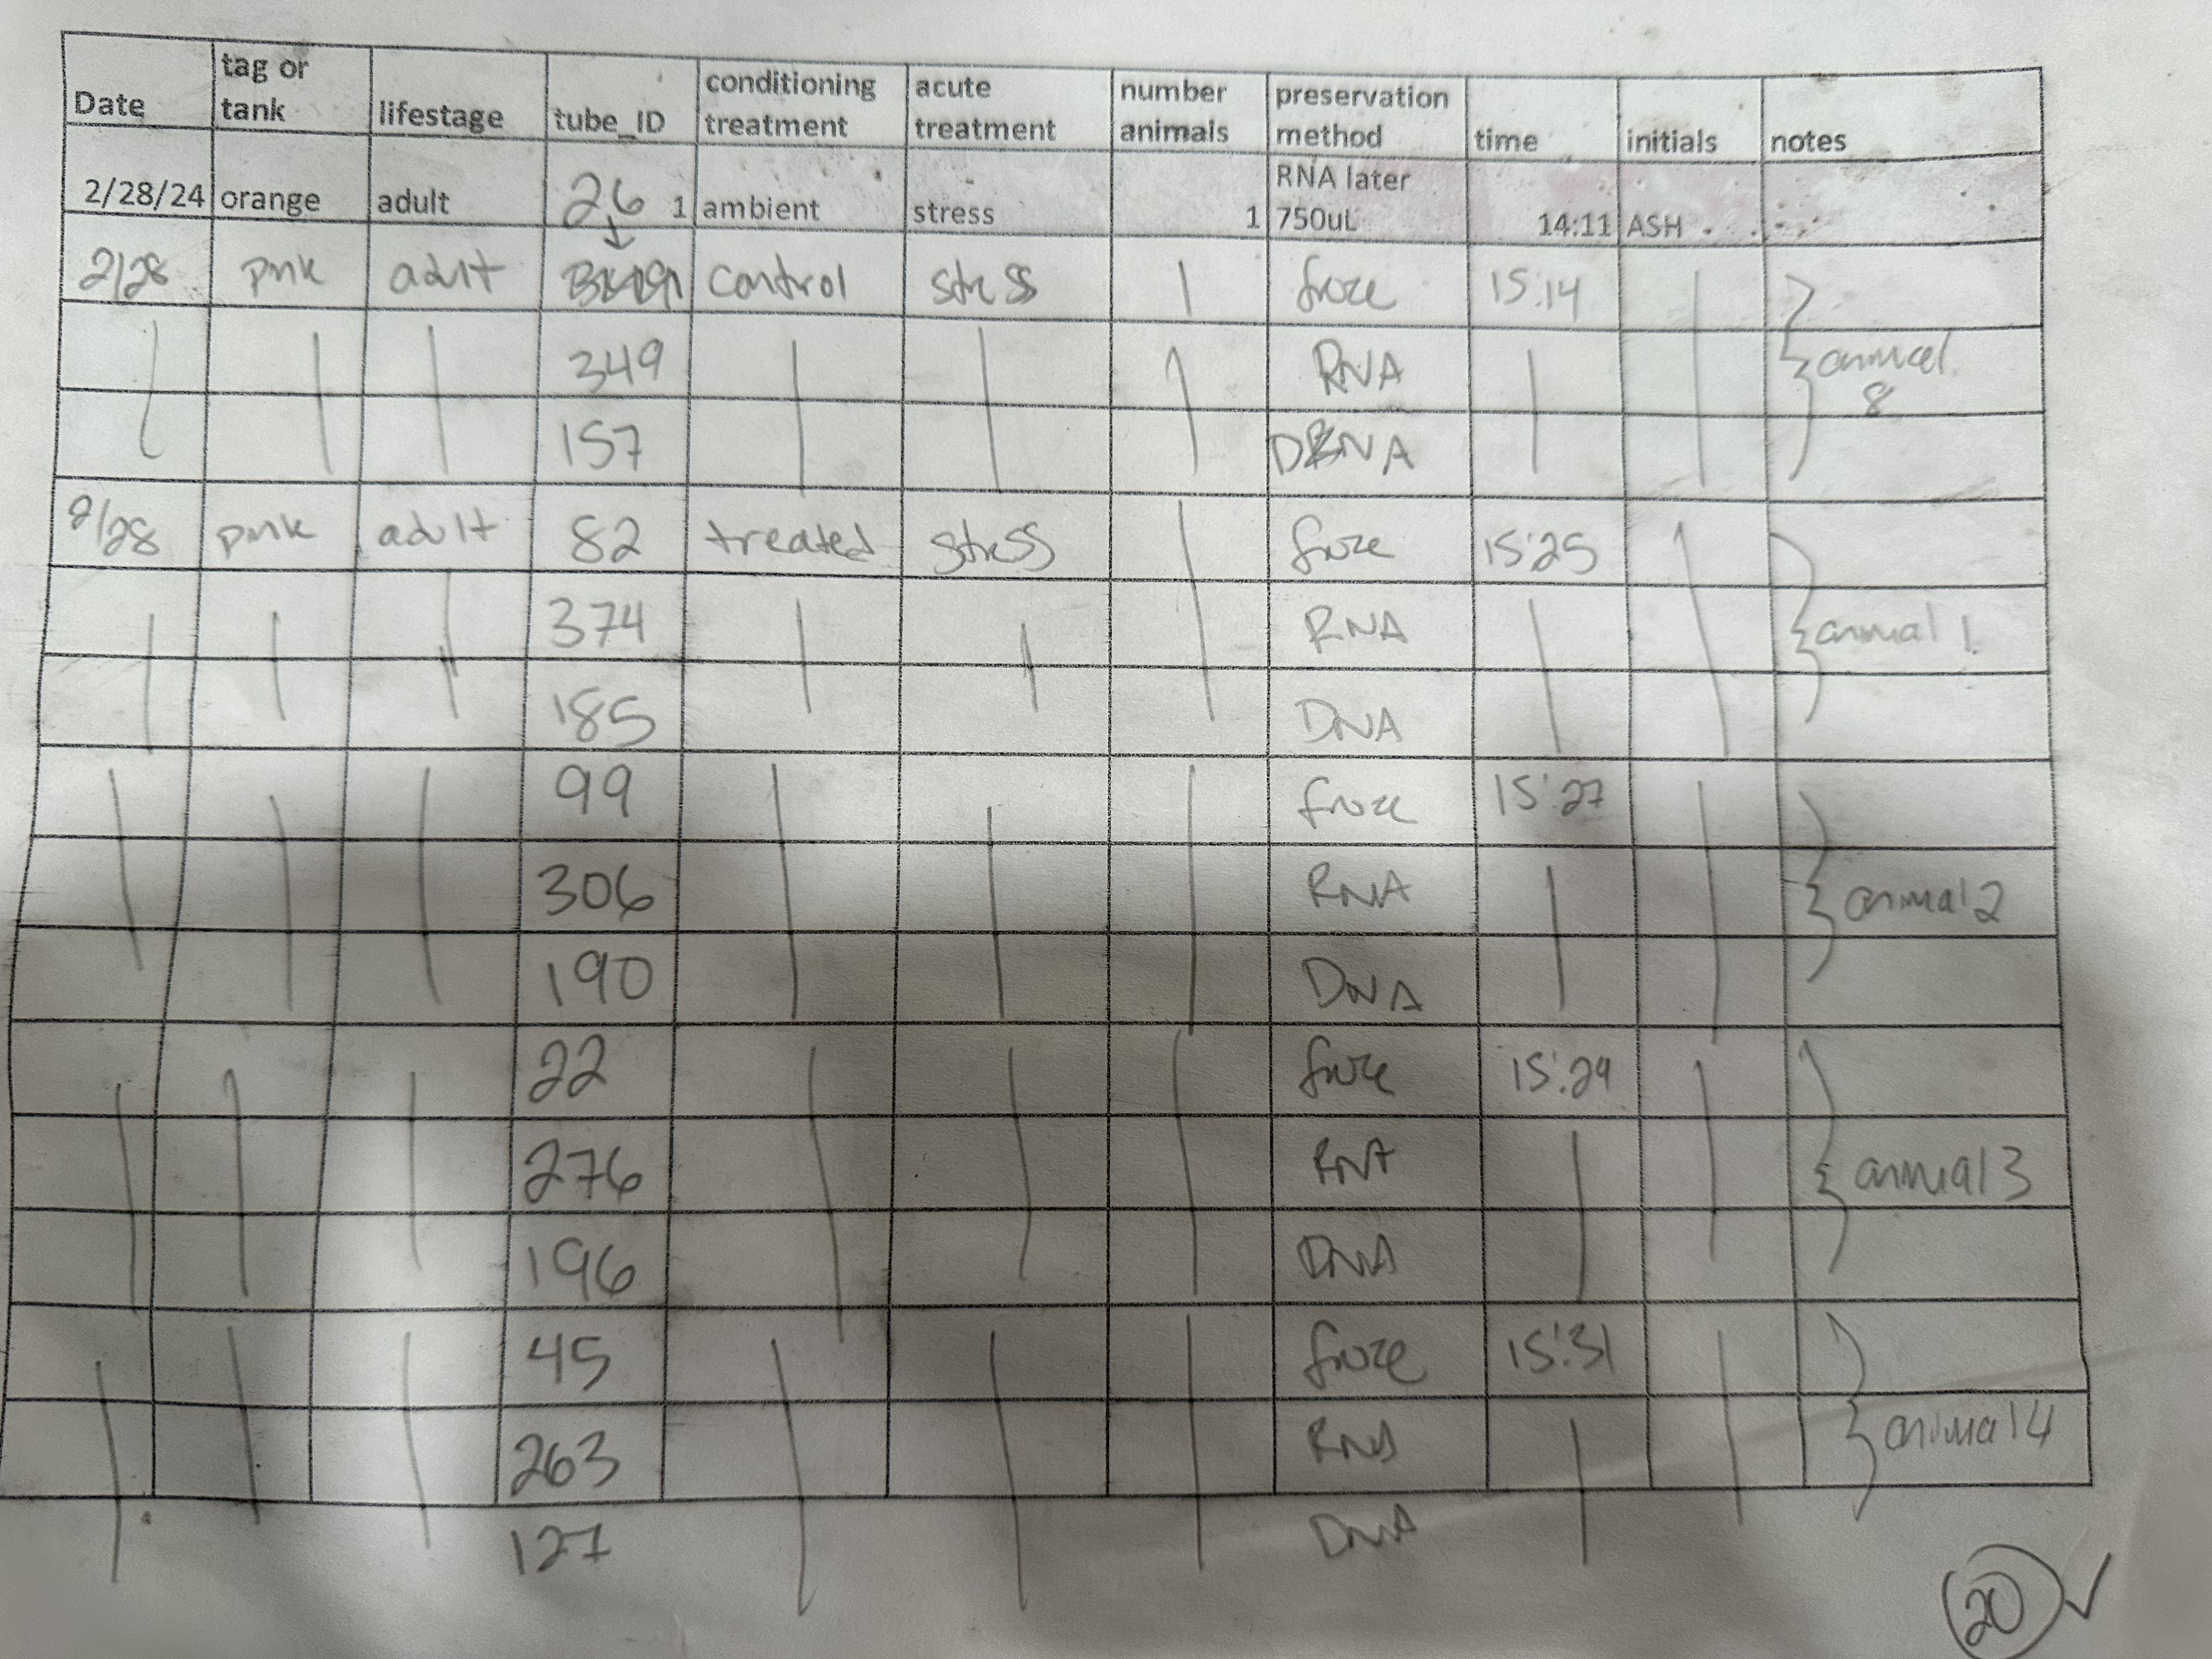 Date tag or tank lifestage tube_ID conditioning treatment acute treatment number animals preservation method time initials notes
2/28/24 orange adult 1 ambient stress 1 RNA later 750uL 14:11 ASH
2/28 pink adult 26 control stress 1 froze 15:14
349 RNA } animal 8
157 DNA
2/28 pink adult 82 treated stress froze 15:25
374 RNA } animal 1
185 DNA
99 froze 15:27
306 RNA } animal 2
190 DNA
22 froze 15:29
276 RNA } animal 3
196 DNA
45 froze 15:31
263 RNA } animal 4
127 DNA
20